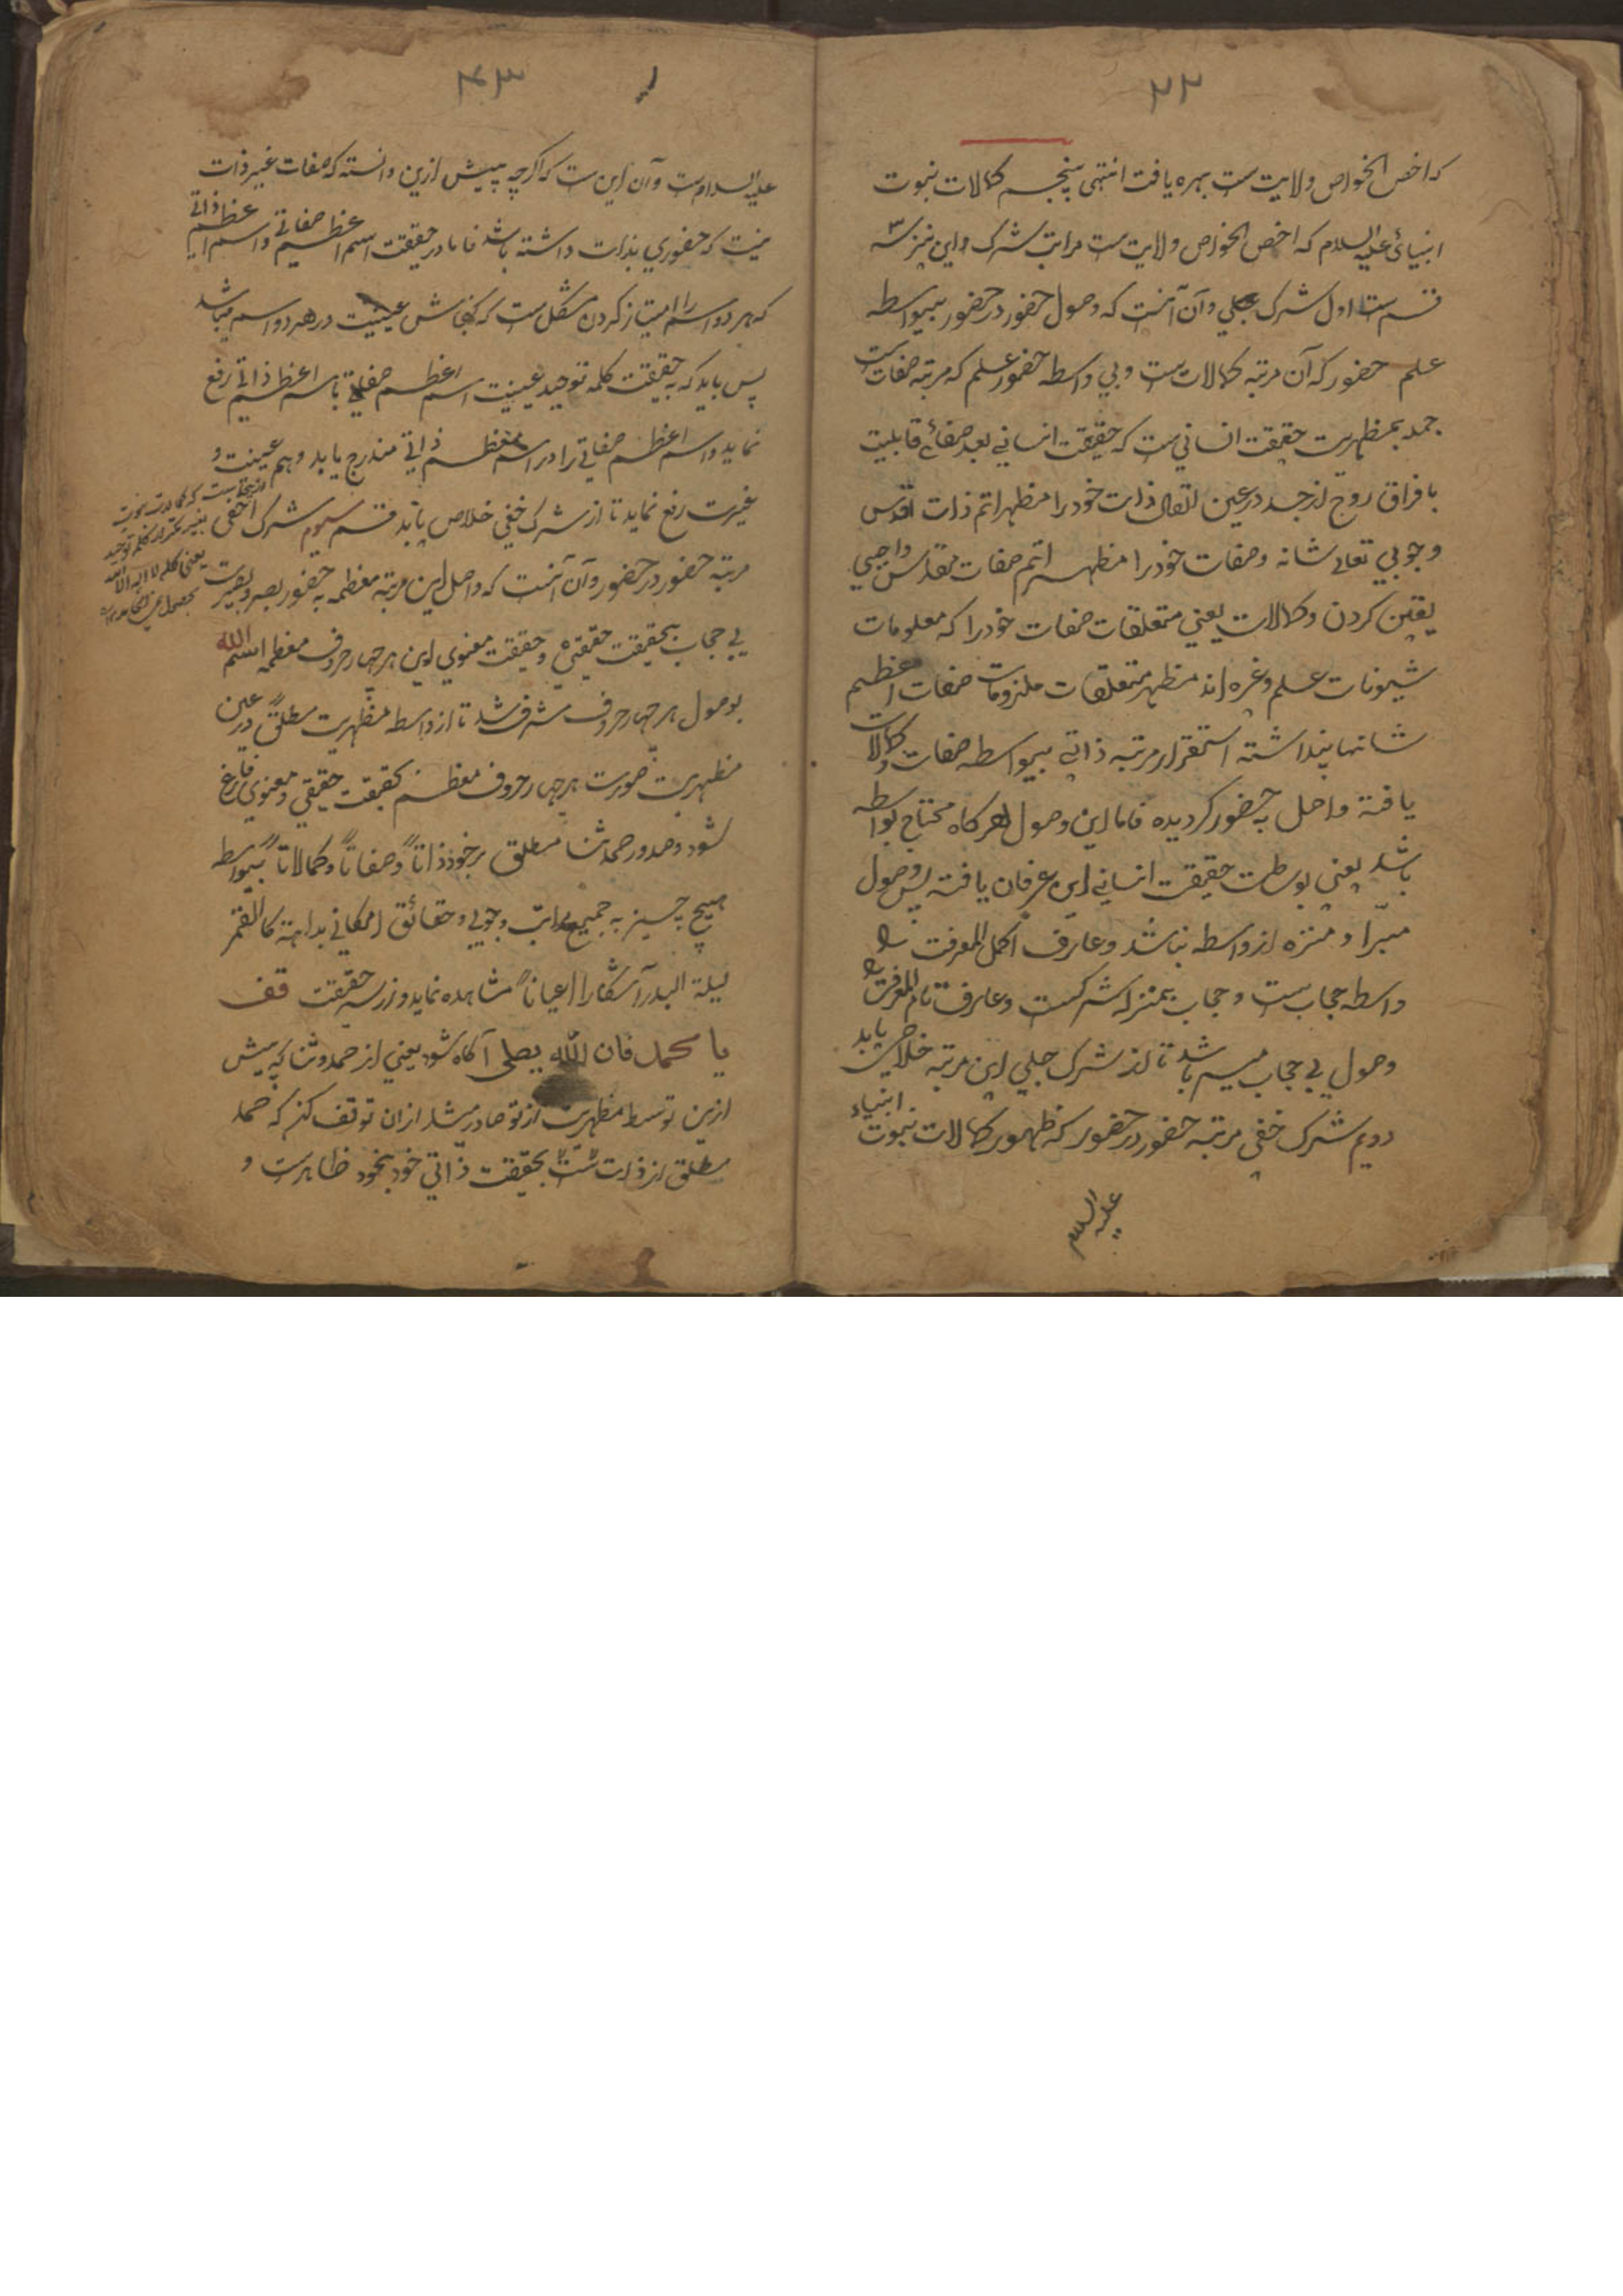 ۲۲
که اخص الخواص ولایت ست بهره یافت انتهی پنجم کمالات نبوت
انبیائ علیه السلام که اخص الخواص ولایت ست مراتب شرک و این نیز سه
قسم ست اول شرک جلی و آن آنست که وصول حضور در حضور بیواسطه
علم حضور که آن مرتبه کمالات ست و بی واسطه حضور علم که مرتبه صفات ست
جمد بمظهریت حقیقت انسانی ست که حقیقت انسانی بعد صفائ قابلیت
با فراق روح از جسد در عین اتصال ذات خود را مظهر اتم ذات اقدس
وجوبی تعالی شانه وصفات خود را مظهر اتم صفات مقدس واجبی
یقین کردن وکمالات یعنی متعلقات صفات خود را که معلومات
شیونات علم وغیره اند مظهر متعلقات ملزومات صفات اعظیم
شانها پنداشته استقرار مرتبه ذاتی بیواسطه صفات وکمالات
یافته واصل به حضور کردیده فاما این وصول هر کاه محتاج بواسطه
باشد یعنی بوساطت حقیقت انسانی این عرفان یافته پس وصول
مبرا و منزه از واسطه نباشد وعارف اکمل المعرفت را
واسطه حجاب ست وحجاب بمنزله شرکست وعارف تام المعرفت را
وصول بی حجاب میسر باشد تا از شرک جلی این مرتبه خلاص یابد
دویم شرک خفی مرتبه حضور در حضور که ظهور کمالات نبوت انبیاء
علیه السلام
۴۳
علیه السلام ست وآن این ست که اکرچه پیش ازین دانسته که صفات غیر ذات
نیست که حضوری بذات داشته باشد فاما در حقیقت اسم اعظم صفاتی واسم اعظم ذاتی
که هر دو اسم را امتیاز کردن مشکل ست که کنجایش عینیت در هر دو اسم میباشد
پس باید که به حقیقت کلمه توحید عینیت اسم اعظم صفاتی با اسم اعظم ذاتی رفع
نماید واسم اعظم صفاتی را در اسم اعظم ذاتی مندرج یابد وهم عینیت و
غیریت رفع نماید تا از شرک خفی خلاص یابد قسم سیوم شرک اخفی
بغیر تکرار کلمه توحید
یعنی کلمه لا اله الا الله
مرتبه حضور در حضور وآن آنست که واصل این مرتبه معظمه به حضور بصر وبصیرت
بی حجاب بحقیقت حقیقی وحقیقت معنوی این هر چهار حروف معظمه اسم الله
بوصول هر چهار حروف مشرف شد تا از واسطه مظهریت مطلق در عین
مظهریت صورت هر چهار حروف معظم بحقیقت حقیقی ومعنوی فارغ
شود وصدور حمد ثنا مطلق بر خود ذاتاً وصفاتاً وکمالاتاً بیواسطه
هیچ چیز به جمیع مراتب وجوبی وحقائق امکانی بداهته کالقمر
لیلة البدر آشکارا اعیاناً مشاهده نماید و از سر حقیقت قف
یا محمد فان الله یصلی آکاه شود یعنی از حمد وثنا که پیش
ازین توسط مظهریت از تو صادر میشد ازان توقف کن که حمد
مطلق از ذات تست بحقیقت ذاتی خود بخود ظاهرست و